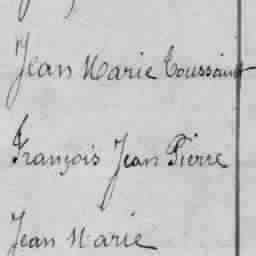 Jean Marie Toussaint
François Jean Pierre
Jean Marie